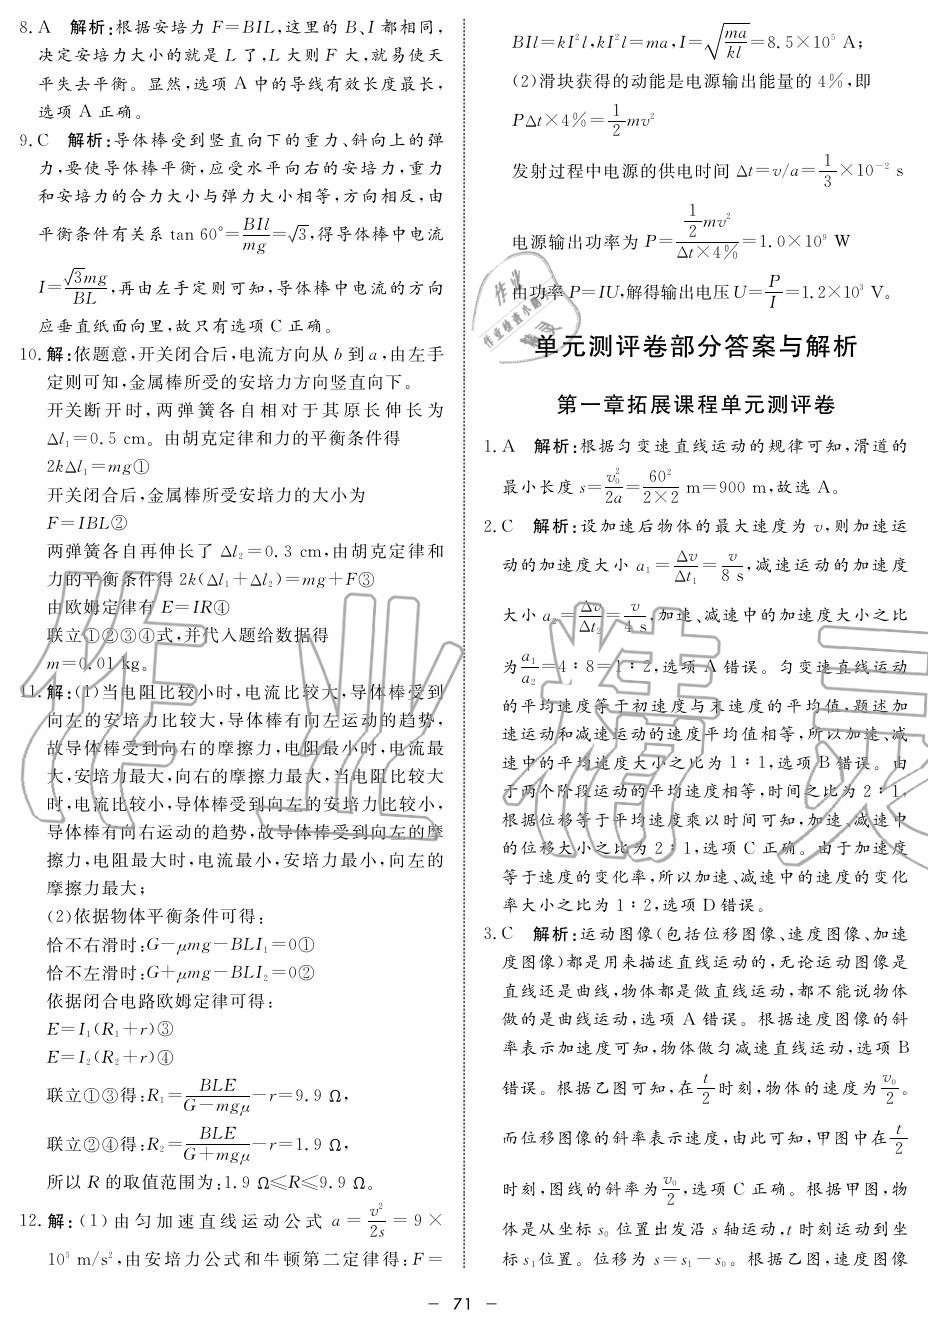 8. A　解析:根据安培力 F=BIL,这里的 B、I 都相同,
决定安培力大小的就是 L 了,L 大则 F 大,就易使天
平失去平衡。显然,选项 A 中的导线有效长度最长,
选项 A 正确。
9. C　解析:导体棒受到竖直向下的重力、斜向上的弹
力,要使导体棒平衡,应受水平向右的安培力,重力
和安培力的合力大小与弹力大小相等,方向相反,由
平衡条件有关系 tan 60°=BIl/mg=√3,得导体棒中电流
I=√3mg/BL,再由左手定则可知,导体棒中电流的方向
应垂直纸面向里,故只有选项 C 正确。
10. 解:依题意,开关闭合后,电流方向从 b 到 a,由左手
定则可知,金属棒所受的安培力方向竖直向下。
开关断开时,两弹簧各自相对于其原长伸长为
Δl₁=0.5 cm。由胡克定律和力的平衡条件得
2kΔl₁=mg①
开关闭合后,金属棒所受安培力的大小为
F=IBL②
两弹簧各自再伸长了 Δl₂=0.3 cm,由胡克定律和
力的平衡条件得 2k(Δl₁+Δl₂)=mg+F③
由欧姆定律有 E=IR④
联立①②③④式,并代入题给数据得
m=0.01 kg。
11. 解:(1)当电阻比较小时,电流比较大,导体棒受到
向左的安培力比较大,导体棒有向左运动的趋势,
故导体棒受到向右的摩擦力,电阻最小时,电流最
大,安培力最大,向右的摩擦力最大,当电阻比较大
时,电流比较小,导体棒受到向左的安培力比较小,
导体棒有向右运动的趋势,故导体棒受到向左的摩
擦力,电阻最大时,电流最小,安培力最小,向左的
摩擦力最大;
(2)依据物体平衡条件可得:
恰不右滑时:G−μmg−BLI₁=0①
恰不左滑时:G+μmg−BLI₂=0②
依据闭合电路欧姆定律可得:
E=I₁(R₁+r)③
E=I₂(R₂+r)④
联立①③得:R₁=BLE/(G−mgμ)−r=9.9 Ω,
联立②④得:R₂=BLE/(G+mgμ)−r=1.9 Ω,
所以 R 的取值范围为:1.9 Ω≤R≤9.9 Ω。
12. 解:(1)由匀加速直线运动公式 a=v²/2s=9×
10⁵ m/s²,由安培力公式和牛顿第二定律得:F=
BIl=kI²l,kI²l=ma,I=√(ma/kl)=8.5×10⁵ A;
(2)滑块获得的动能是电源输出能量的 4%,即
PΔt×4%=1/2mv²
发射过程中电源的供电时间 Δt=v/a=1/3×10⁻² s
电源输出功率为 P=(1/2mv²)/(Δt×4%)=1.0×10⁹ W
由功率 P=IU,解得输出电压 U=P/I=1.2×10³ V。
单元测评卷部分答案与解析
第一章拓展课程单元测评卷
1. A　解析:根据匀变速直线运动的规律可知,滑道的
最小长度 s=v₀²/2a=60²/(2×2) m=900 m,故选 A。
2. C　解析:设加速后物体的最大速度为 v,则加速运
动的加速度大小 a₁=Δv/Δt₁=v/8 s,减速运动的加速度
大小 a₂=Δv/Δt₂=v/4 s,加速、减速中的加速度大小之比
为a₁/a₂=4∶8=1∶2,选项 A 错误。匀变速直线运动
的平均速度等于初速度与末速度的平均值,题述加
速运动和减速运动的速度平均值相等,所以加速、减
速中的平均速度大小之比为 1∶1,选项 B 错误。由
于两个阶段运动的平均速度相等,时间之比为 2∶1,
根据位移等于平均速度乘以时间可知,加速、减速中
的位移大小之比为 2∶1,选项 C 正确。由于加速度
等于速度的变化率,所以加速、减速中的速度的变化
率大小之比为 1∶2,选项 D 错误。
3. C　解析:运动图像(包括位移图像、速度图像、加速
度图像)都是用来描述直线运动的,无论运动图像是
直线还是曲线,物体都是做直线运动,都不能说物体
做的是曲线运动,选项 A 错误。根据速度图像的斜
率表示加速度可知,物体做匀减速直线运动,选项 B
错误。根据乙图可知,在t/2时刻,物体的速度为v₀/2。
而位移图像的斜率表示速度,由此可知,甲图中在t/2
时刻,图线的斜率为v₀/2,选项 C 正确。根据甲图,物
体是从坐标 s₀ 位置出发沿 s 轴运动,t 时刻运动到坐
标 s₁位置。位移为 s=s₁−s₀。根据乙图,速度图像
− 71 −
作业精灵